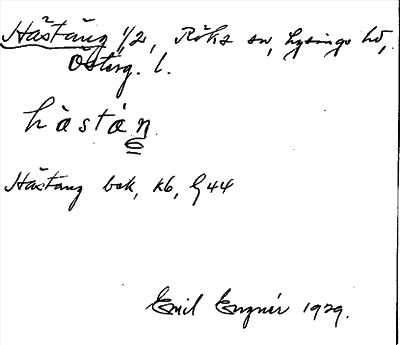 Håstäng 1/2, Röks sn, Lysings hd,
Österg. l.
hàstáŋ
Håstang bok, kb, G44
Emil Engnér 1929.